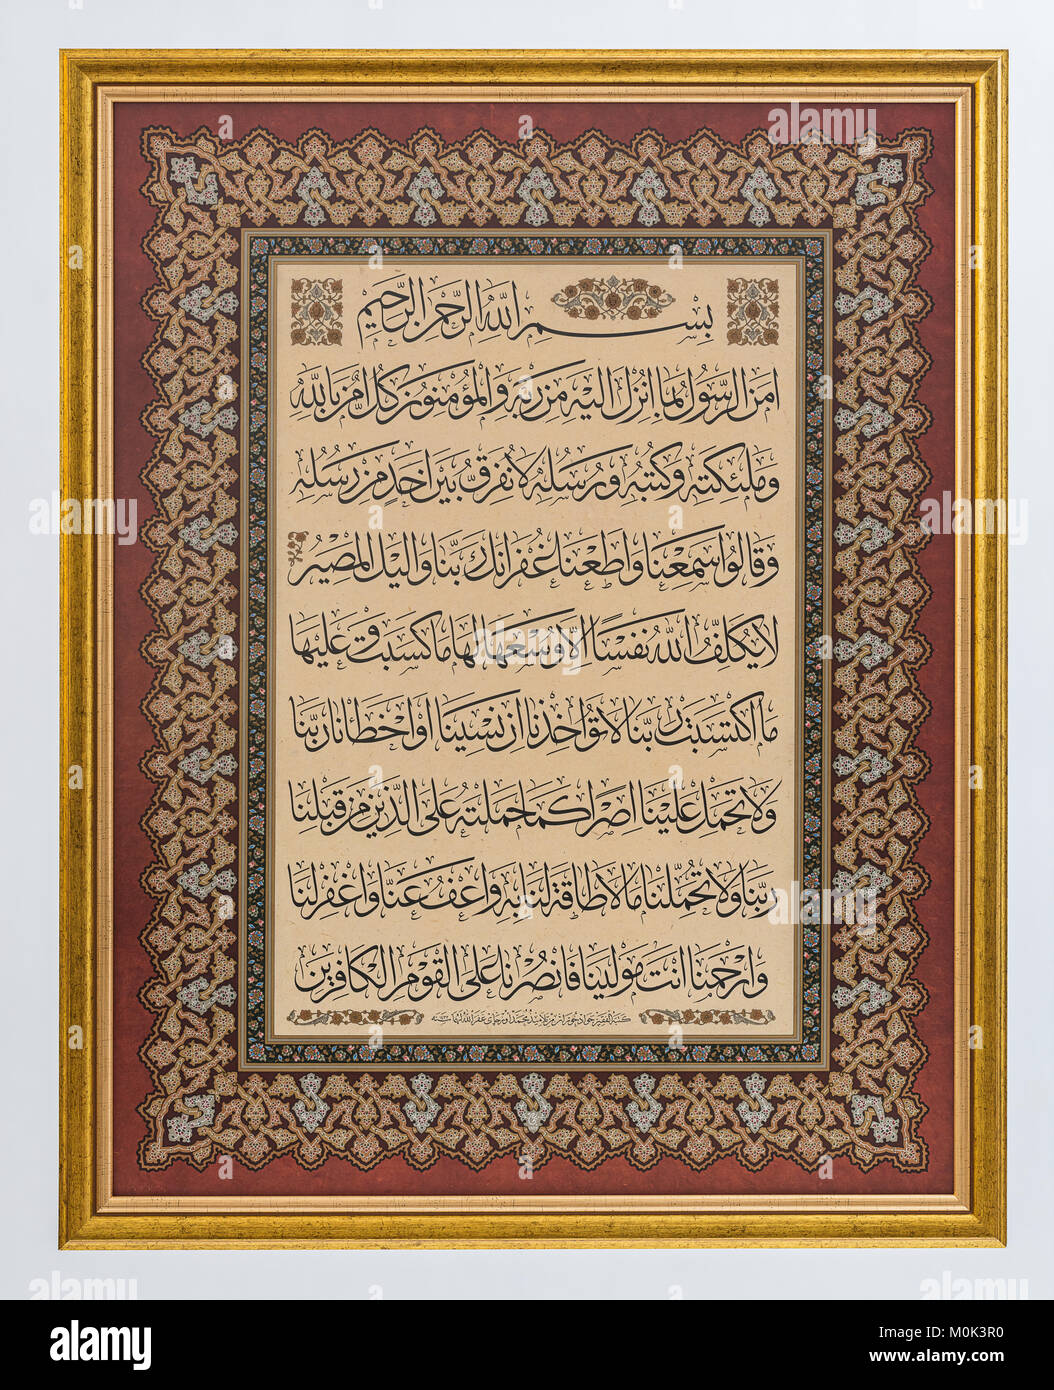 بسم الله الرحمن الرحيم
امن الرسول بما انزل اليه من ربه والمؤمنون كل امن بالله
وملئكته وكتبه ورسله لا نفرق بين احد من رسله
وقالوا سمعنا واطعنا غفرانك ربنا واليك المصير
لا يكلف الله نفسا الا وسعها لها ما كسبت وعليها
ما اكتسبت ربنا لا تؤاخذنا ان نسينا او اخطانا ربنا
ولا تحمل علينا اصرا كما حملته على الذين من قبلنا
ربنا ولا تحملنا ما لا طاقة لنا به واعف عنا واغفر لنا
وارحمنا انت مولينا فانصرنا على القوم الكافرين
alamy
alamy
www.alamy.com
Image ID: M0K3R0